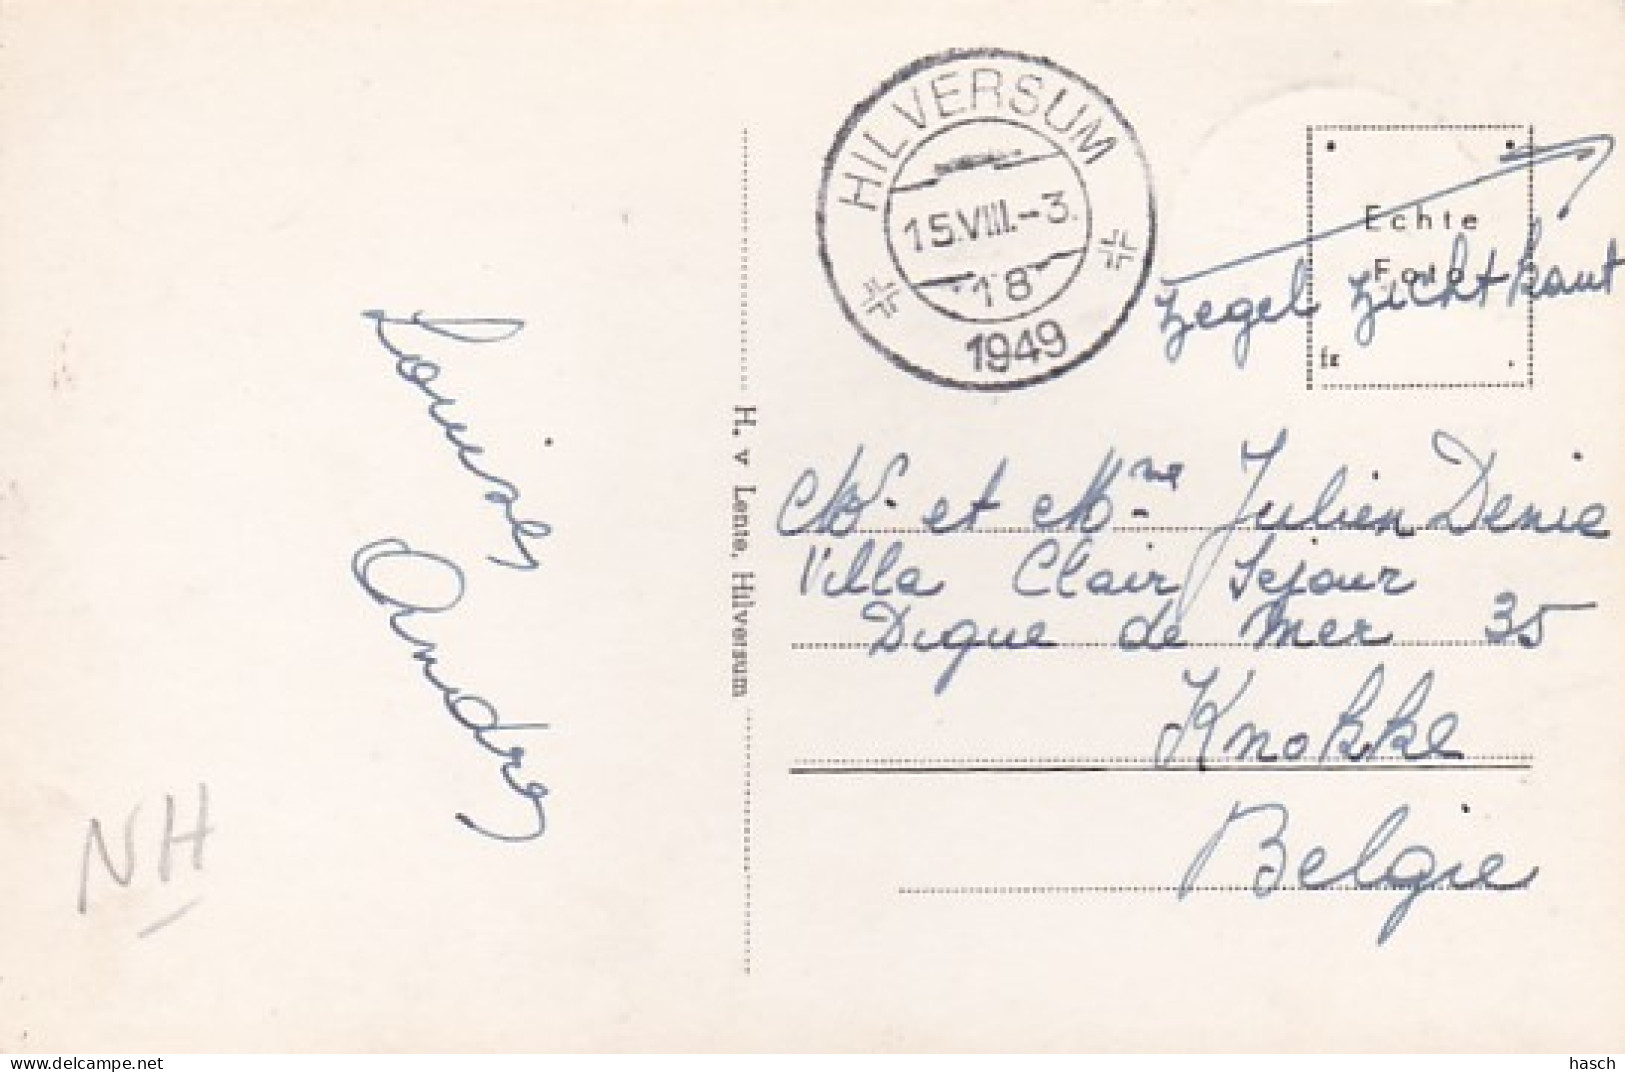 HILVERSUM
15.VIII.-3.
18
1949
Echte
Foto
fg
zegel zichtkant
H. v Lente, Hilversum
Mr. et Mme Julien Denie
Villa Clair Sejour
Digue de Mer 35
Knokke
Belgie
Andrey
NH
www.delcampe.net
hasch